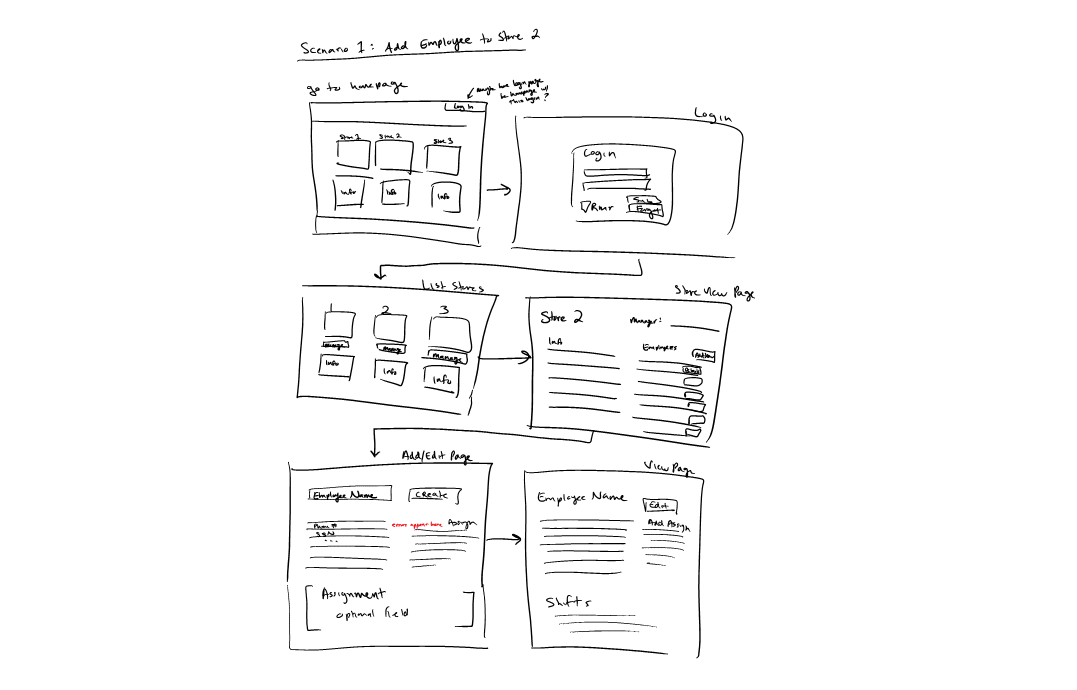 Scenario 1: Add Employee to Store 2
go to homepage
maybe have login page
be homepage w/
this login?
Log In
Store 1
Store 2
Store 3
Info
Info
Info
Login
Login
Rmr
Sub
Forgot
List Stores
1
2
3
manage
manage
manage
Info
Info
Info
Store View Page
Store 2
Manager:
Info
Employees
Add/Edit Page
Employee Name
Create
Phone #
SSN
...
errors appear here
Assign
Assignment
optional field
View Page
Employee Name
Edit
Add Assign
Shifts